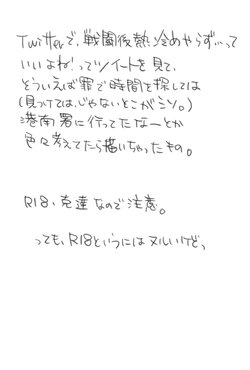 Twitterで、戦闘後熱冷めやらず…って
いいよね!ってツイートを見て、
どういえば罪で時間を探しては
(見つけては、じゃないとこがミソ。)
港南署に行ってたなーとか
色々考えてたら描いちゃったもの。
R18、克達なので注意。
っても、R18というにはヌルいけど。